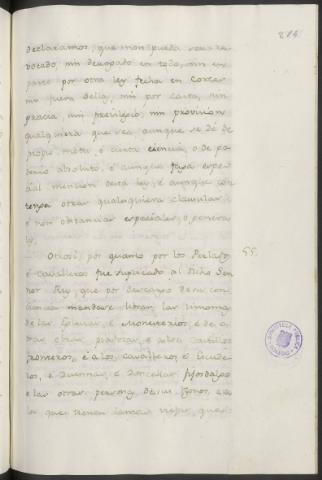 284
declaramos, que non pueda seer re-
vocado, nin derogado en todo, nin en
parte por otra ley fecha en Cortes
nin fuera dellas, nin por carta, nin
gracia, nin previlegio, nin provision
qualquiera que sea, aunque se dé de
propio motu, é cierta ciencia, o de po-
derio absoluto, é aunque faga espe-
cial mencion desta ley, é aunque con-
tenga otras qualesquiera clausulas
é non obstancias especiales, o genera-
les.
Otrosi, por quanto por los Perlados,
é cavalleros fue suplicado al dicho Sen-
nor Rey, que por descargo de su con-
ciencia mandase librar las limosnas
de las Iglesias, é Monesterios, é de
otras obras piadosas, é a los Castillos
fronteros, é á los cavalleros, é Escude-
ros, é Duennas, é Doncellas, fijosdalgo,
é las otras personas de sus Regnos, a
los que tienen
55.